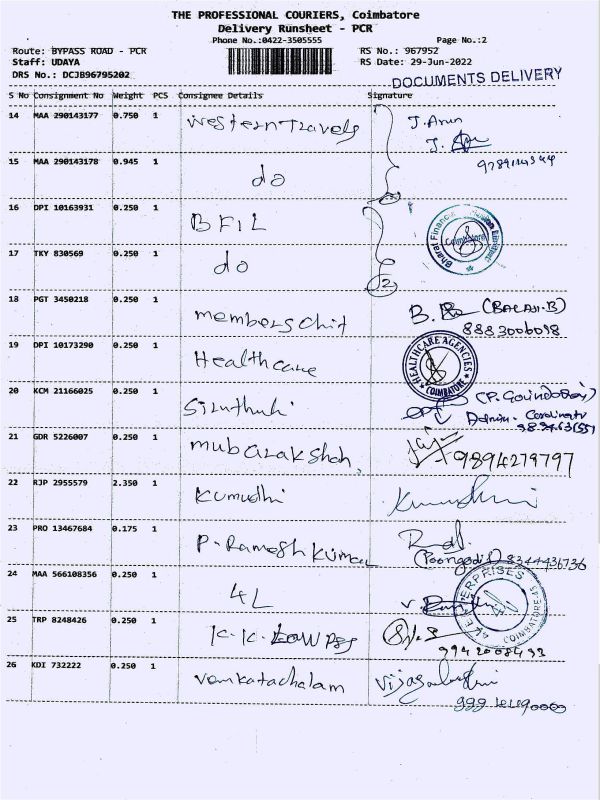 THE PROFESSIONAL COURIERS, Coimbatore
Delivery Runsheet - PCR
Phone No.:0422-3505555 Page No.:2
Route: BYPASS ROAD - PCR RS No.: 967952
Staff: UDAYA RS Date: 29-Jun-2022
DRS No.: DCJB96795202
DOCUMENTS DELIVERY
S No Consignment No Weight PCS Consignee Details Signature
14 MAA 290143177 0.750 1 Western Travels J. Arun
15 MAA 290143178 0.945 1 do
16 DPI 10163931 0.250 1 BFIL
17 TKY 830569 0.250 1 do 2
18 PGT 3450218 0.250 1 members chit B. (BALAJI.B)
8883006098
19 DPI 10173290 0.250 1 Healthcare HEALTHCARE AGENCIES COIMBATORE
20 KCM 21166025 0.250 1 Siruthuli
21 GDR 5226007 0.250 1 mubarakshah, 9894279797
22 RJP 2955579 2.350 1 Kumudhi
23 PRO 13467684 0.175 1 P. Ramesh Kumar
(Poongodi) 8344436736
24 MAA 566108356 0.250 1 4L
25 TRP 8248426 0.250 1 K.K.
26 KDI 732222 0.250 1 Venkatachalam